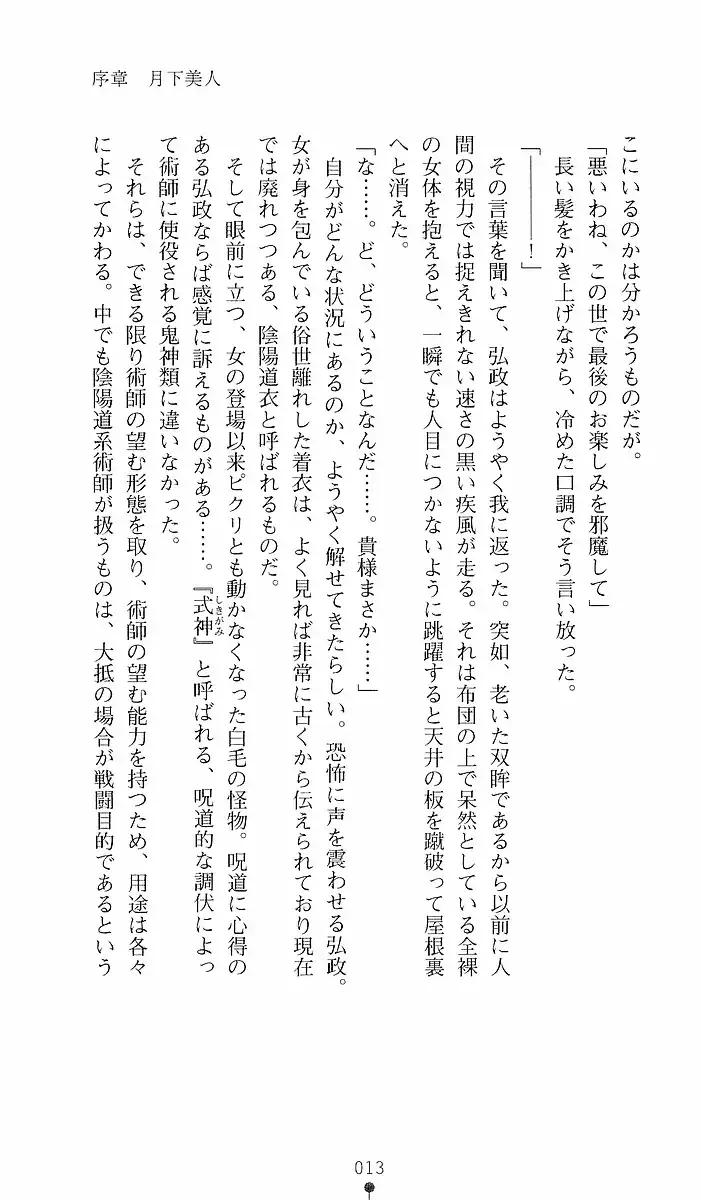 序章　月下美人
こにいるのかは分かろうものだが。
「悪いわね、この世で最後のお楽しみを邪魔して」
長い髪をかき上げながら、冷めた口調でそう言い放った。
「――――！」
その言葉を聞いて、弘政はようやく我に返った。突如、老いた双眸であるから以前に人
間の視力では捉えきれない速さの黒い疾風が走る。それは布団の上で呆然としている全裸
の女体を抱えると、一瞬でも人目につかないように跳躍すると天井の板を蹴破って屋根裏
へと消えた。
「な……。ど、どういうことなんだ……。貴様まさか……」
自分がどんな状況にあるのか、ようやく解せてきたらしい。恐怖に声を震わせる弘政。
女が身を包んでいる俗世離れした着衣は、よく見れば非常に古くから伝えられており現在
では廃れつつある、陰陽道衣と呼ばれるものだ。
そして眼前に立つ、女の登場以来ピクリとも動かなくなった白毛の怪物。呪道に心得の
ある弘政ならば感覚に訴えるものがある……。『式神』と呼ばれる、呪道的な調伏によっ
しきがみ
て術師に使役される鬼神類に違いなかった。
それらは、できる限り術師の望む形態を取り、術師の望む能力を持つため、用途は各々
によってかわる。中でも陰陽道系術師が扱うものは、大抵の場合が戦闘目的であるという
013